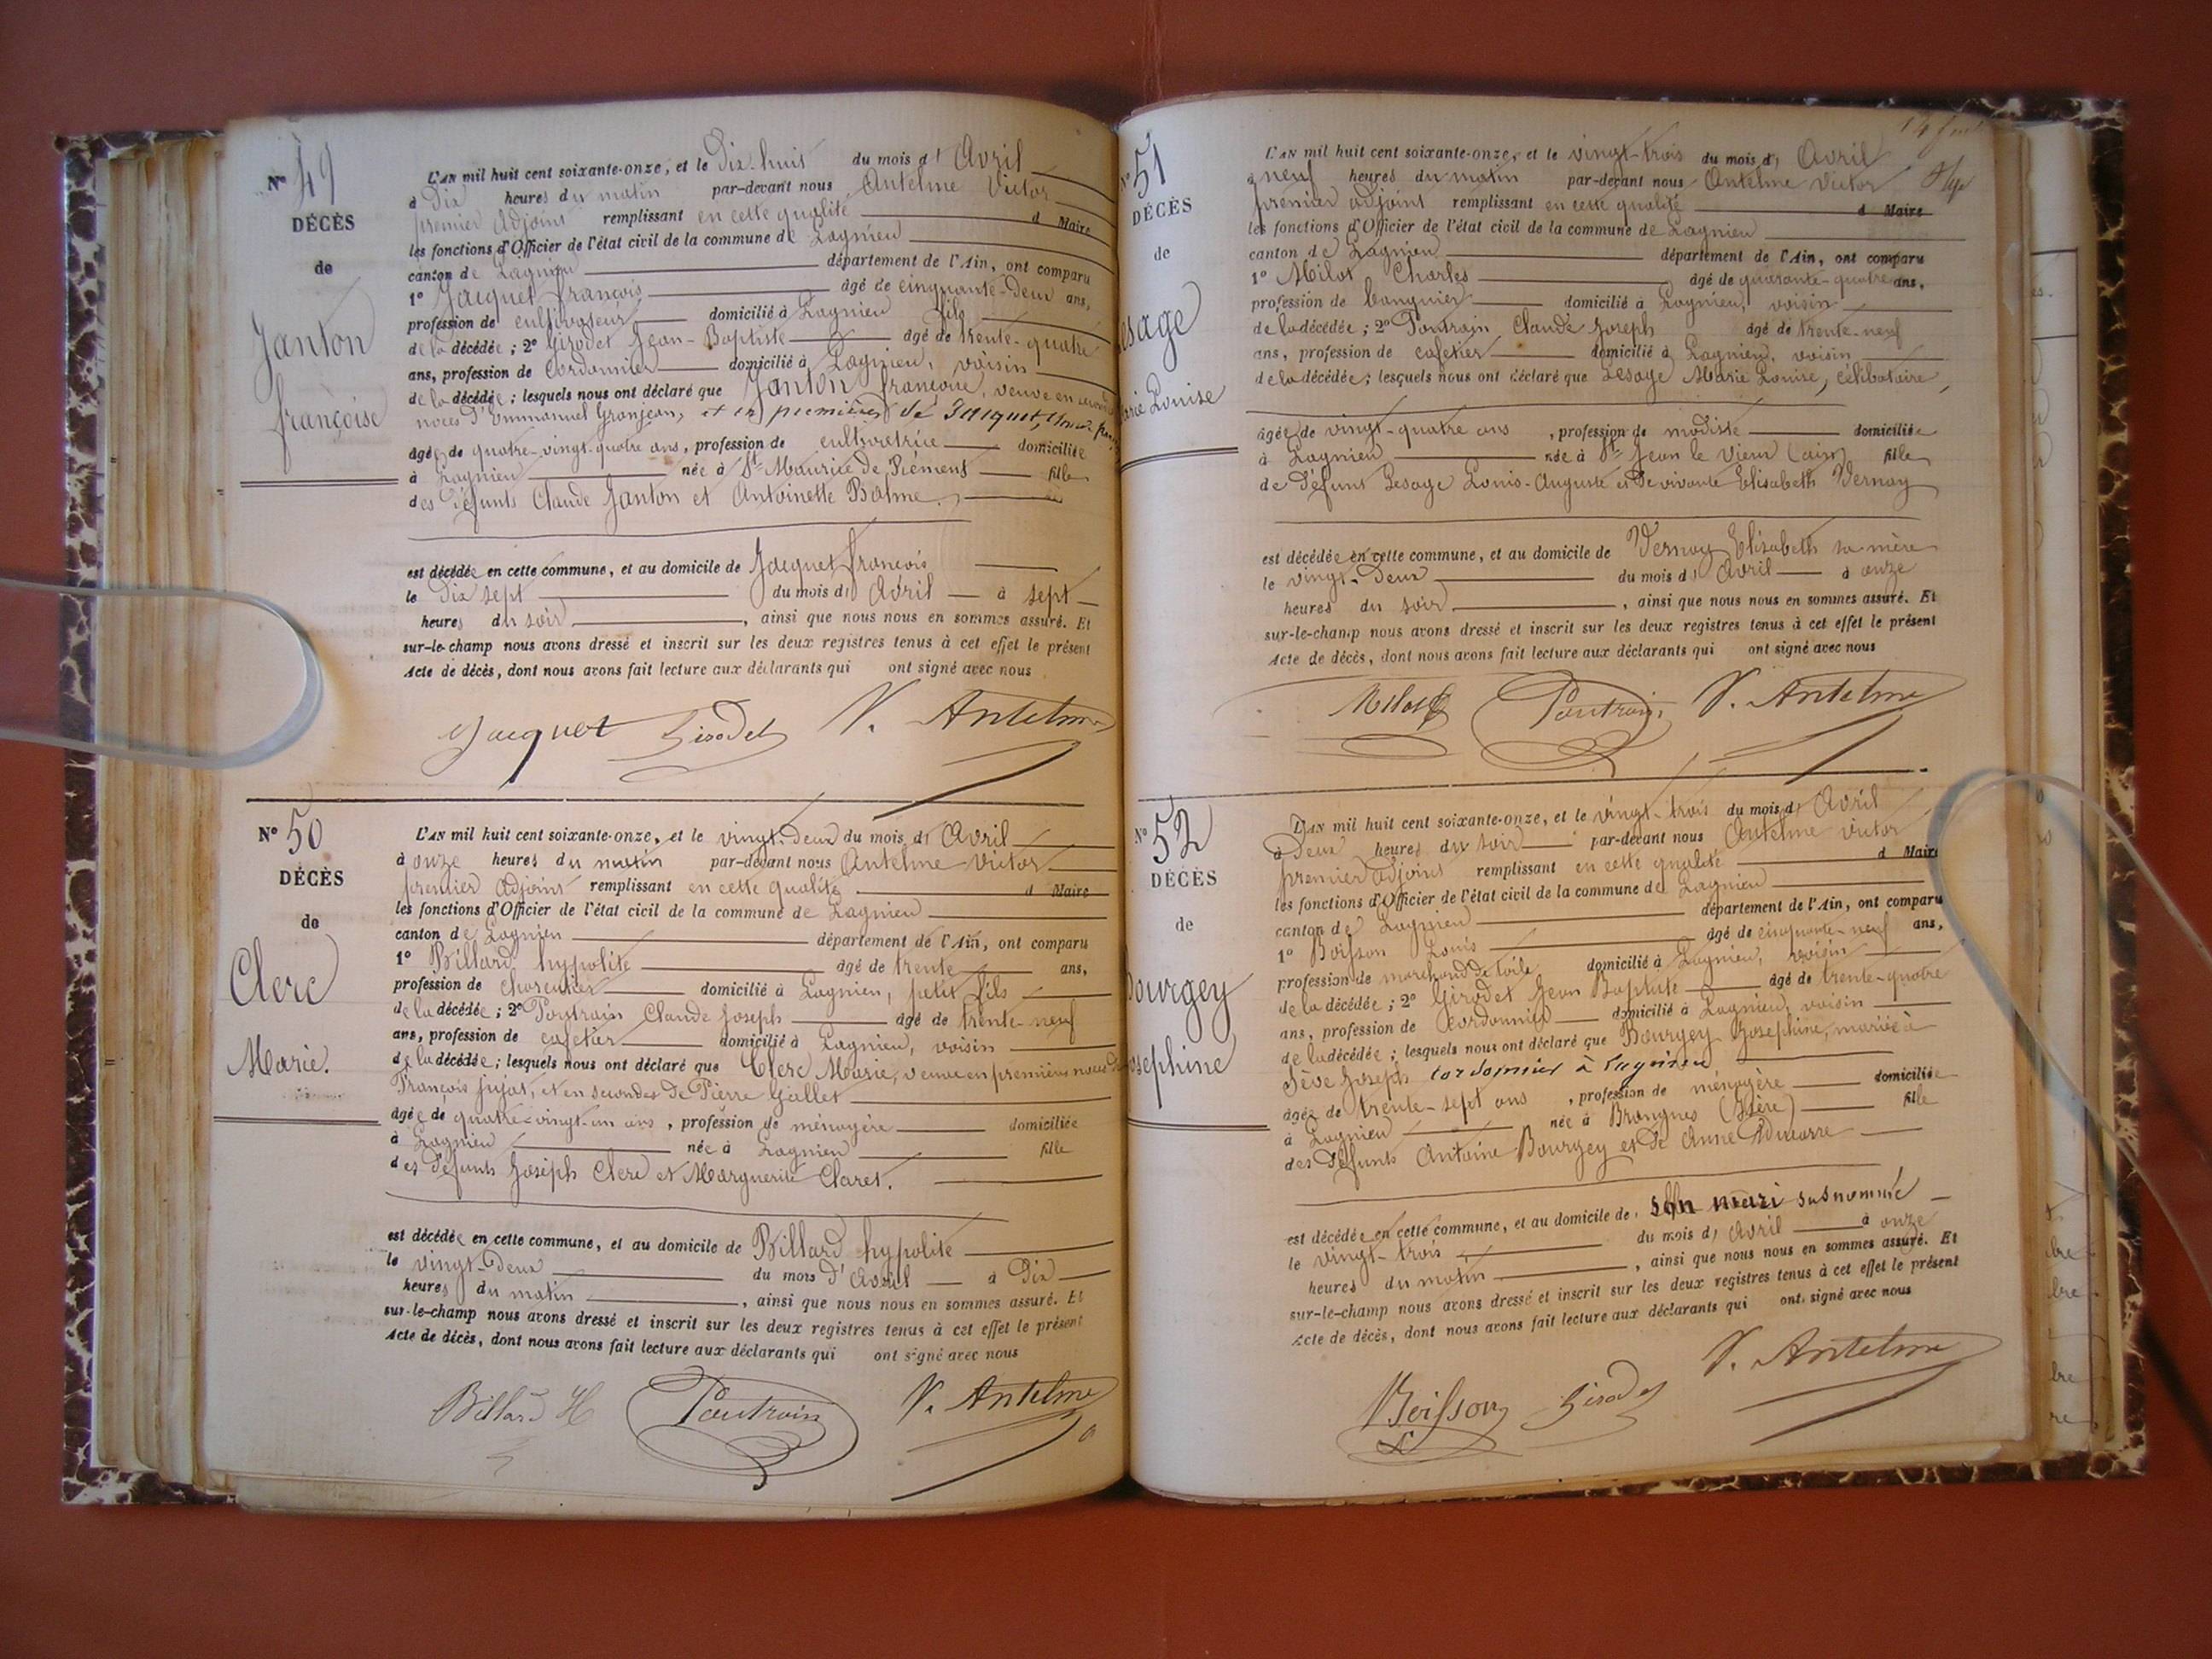 N° 49
DÉCÈS
de
Janton
françoise
L'AN mil huit cent soixante-onze, et le Dix-huit du mois d' Avril
à Dix heures du matin par-devant nous Antelme Victor
premier Adjoint remplissant en cette qualité d Maire
les fonctions d'Officier de l'état civil de la commune de Lagnieu
canton de Lagnieu département de l'Ain, ont comparu
1° Jacquet françois âgé de cinquante-deux ans,
profession de cultivateur domicilié à Lagnieu fils
de la décédée ; 2° Girodet Jean-Baptiste âgé de trente-quatre
ans, profession de cordonnier domicilié à Lagnieu, voisin
de la décédée ; lesquels nous ont déclaré que Janton françoise, veuve en secondes
noces d'Emmanuel Gronjean, et en premières de Jacquet,
âgée de quatre-vingt-quatre ans, profession de cultivatrice domiciliée
à Lagnieu née à St Maurice de Rémens fille
des défunts Claude Janton et Antoinette Balme.
est décédée en cette commune, et au domicile de Jacquet françois
le Dix sept du mois d' Avril à sept
heures du soir, ainsi que nous nous en sommes assuré. Et
sur-le-champ nous avons dressé et inscrit sur les deux registres tenus à cet effet le présent
Acte de décès, dont nous avons fait lecture aux déclarants qui ont signé avec nous
Jacquet Girodet V. Antelme
N° 50
DÉCÈS
de
Clerc
Marie.
L'AN mil huit cent soixante-onze, et le vingt-deux du mois d' Avril
à onze heures du matin par-devant nous Antelme Victor
premier Adjoint remplissant en cette qualité d Maire
les fonctions d'Officier de l'état civil de la commune de Lagnieu
canton de Lagnieu département de l'Ain, ont comparu
1° Billard hypolite âgé de trente ans,
profession de charcutier domicilié à Lagnieu, petit fils
de la décédée ; 2° Poutrain Claude Joseph âgé de trente-neuf
ans, profession de cafetier domicilié à Lagnieu, voisin
de la décédée ; lesquels nous ont déclaré que Clerc Marie, veuve en premières noces de
François jujat, et en secondes de Pierre Gallet
âgée de quatre-vingt-un ans, profession de ménagère domiciliée
à Lagnieu née à Lagnieu fille
des défunts Joseph Clerc et Marguerite Claret.
est décédée en cette commune, et au domicile de Billard hypolite
le vingt-deux du mois d'avril à Dix
heures du matin, ainsi que nous nous en sommes assuré. Et
sur-le-champ nous avons dressé et inscrit sur les deux registres tenus à cet effet le présent
Acte de décès, dont nous avons fait lecture aux déclarants qui ont signé avec nous
Billard H Poutrain V. Antelme
N° 51
DÉCÈS
de
esage
arie Louise
L'AN mil huit cent soixante-onze, et le vingt-trois du mois d' Avril
à neuf heures du matin par-devant nous Antelme Victor
premier adjoint remplissant en cette qualité d Maire
les fonctions d'Officier de l'état civil de la commune de Lagnieu
canton de Lagnieu département de l'Ain, ont comparu
1° Milot Charles âgé de quarante-quatre ans,
profession de banquier domicilié à Lagnieu, voisin
de la décédée ; 2° Poutrain Claude Joseph âgé de trente-neuf
ans, profession de cafetier domicilié à Lagnieu, voisin
de la décédée ; lesquels nous ont déclaré que Lesage Marie Louise, célibataire,
âgée de vingt-quatre ans, profession de modiste domiciliée
à Lagnieu née à St Jean le Vieux (ain) fille
de défunt Lesage Louis-Auguste et de vivante Elisabeth Vernay
est décédée en cette commune, et au domicile de Vernay Elisabeth sa mère
le vingt-deux du mois d' Avril à onze
heures du soir, ainsi que nous nous en sommes assuré. Et
sur-le-champ nous avons dressé et inscrit sur les deux registres tenus à cet effet le présent
Acte de décès, dont nous avons fait lecture aux déclarants qui ont signé avec nous
Milot Poutrain V. Antelme
N° 52
DÉCÈS
de
Bourgey
osephine
L'AN mil huit cent soixante-onze, et le vingt-trois du mois d' Avril
à Deux heures du soir par-devant nous Antelme Victor
premier adjoint remplissant en cette qualité d Maire
les fonctions d'Officier de l'état civil de la commune de Lagnieu
canton de Lagnieu département de l'Ain, ont comparu
1° Boisson Louis âgé de cinquante-neuf ans,
profession de marchand de toile domicilié à Lagnieu, voisin
de la décédée ; 2° Girodet Jean Baptiste âgé de trente-quatre
ans, profession de cordonnier domicilié à Lagnieu, voisin
de la décédée ; lesquels nous ont déclaré que Bourgey Josephine, mariée à
Sève Joseph cordonnier à Lagnieu
âgée de trente-sept ans, profession de ménagère domiciliée
à Lagnieu née à Brangues (Isère) fille
des défunts Antoine Bourgey et de Anne
est décédée en cette commune, et au domicile de son mari susnommé
le vingt-trois du mois d' avril à onze
heures du matin, ainsi que nous nous en sommes assuré. Et
sur-le-champ nous avons dressé et inscrit sur les deux registres tenus à cet effet le présent
Acte de décès, dont nous avons fait lecture aux déclarants qui ont signé avec nous
Boisson Girodet V. Antelme